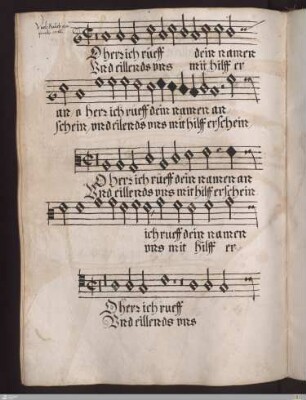 O herr ich rueff dein namen
Vnd eillends vns mit hilff er
an o herr ich rueff dein namen an
schein vnd eilends vns mit hilff erschein
O herr ich rueff dein namen an
Vnd eillends vns mit hilff erschein
ich rueff dein namen
vns mit hilff er
O herr ich rueff
Vnd eillends vns